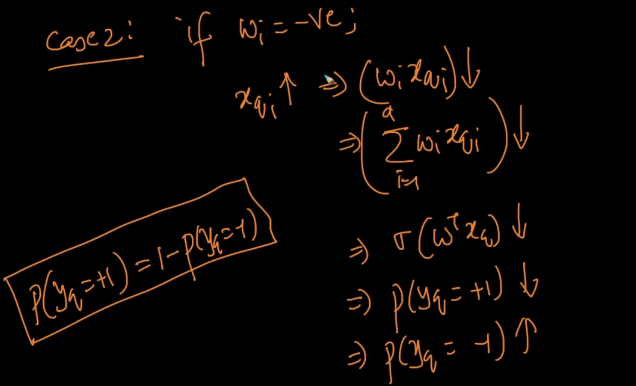 Case2: if wi = -ve;
xqi ↑ ⇒ (wi xqi) ↓
⇒ (d∑i=1 wi xqi) ↓
⇒ σ(wᵀxq) ↓
⇒ P(yq = +1) ↓
⇒ P(yq = -1) ↑
P(yq = +1) = 1 - P(yq = -1)